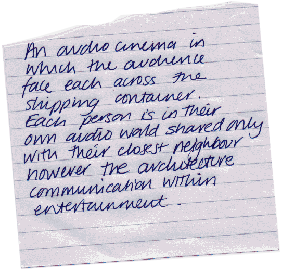 An audio cinema in
which the audience
face each across the
shipping container.
Each person is in their
own audio world shared only
with their closest neighbour
however the architecture
communication within
entertainment.